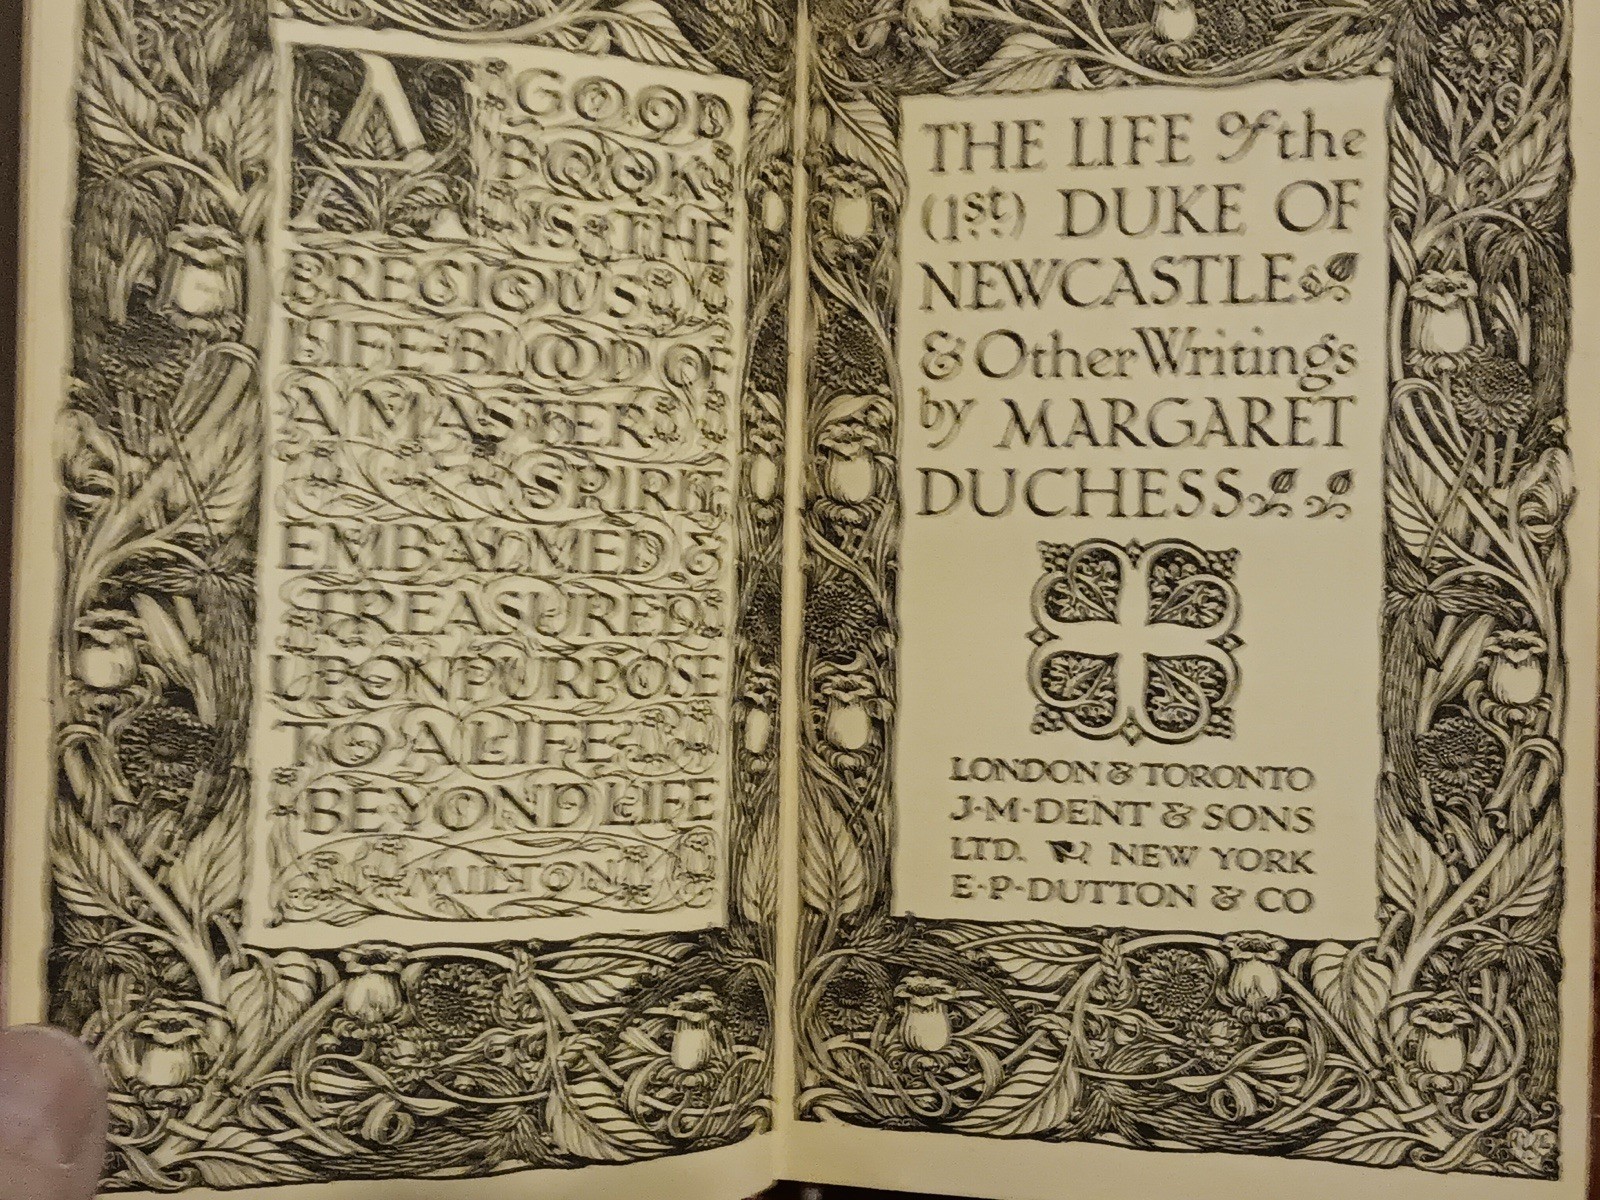 A GOOD
BOOK
IS THE
PRECIOUS
LIFE-BLOOD OF
A MASTER
SPIRIT,
EMBALMED &
TREASURED
UPON PURPOSE
TO A LIFE
BEYOND LIFE
MILTON
THE LIFE of the
(1st) DUKE OF
NEWCASTLE
& Other Writings
by MARGARET
DUCHESS
LONDON & TORONTO
J·M·DENT & SONS
LTD. NEW YORK
E·P·DUTTON & CO